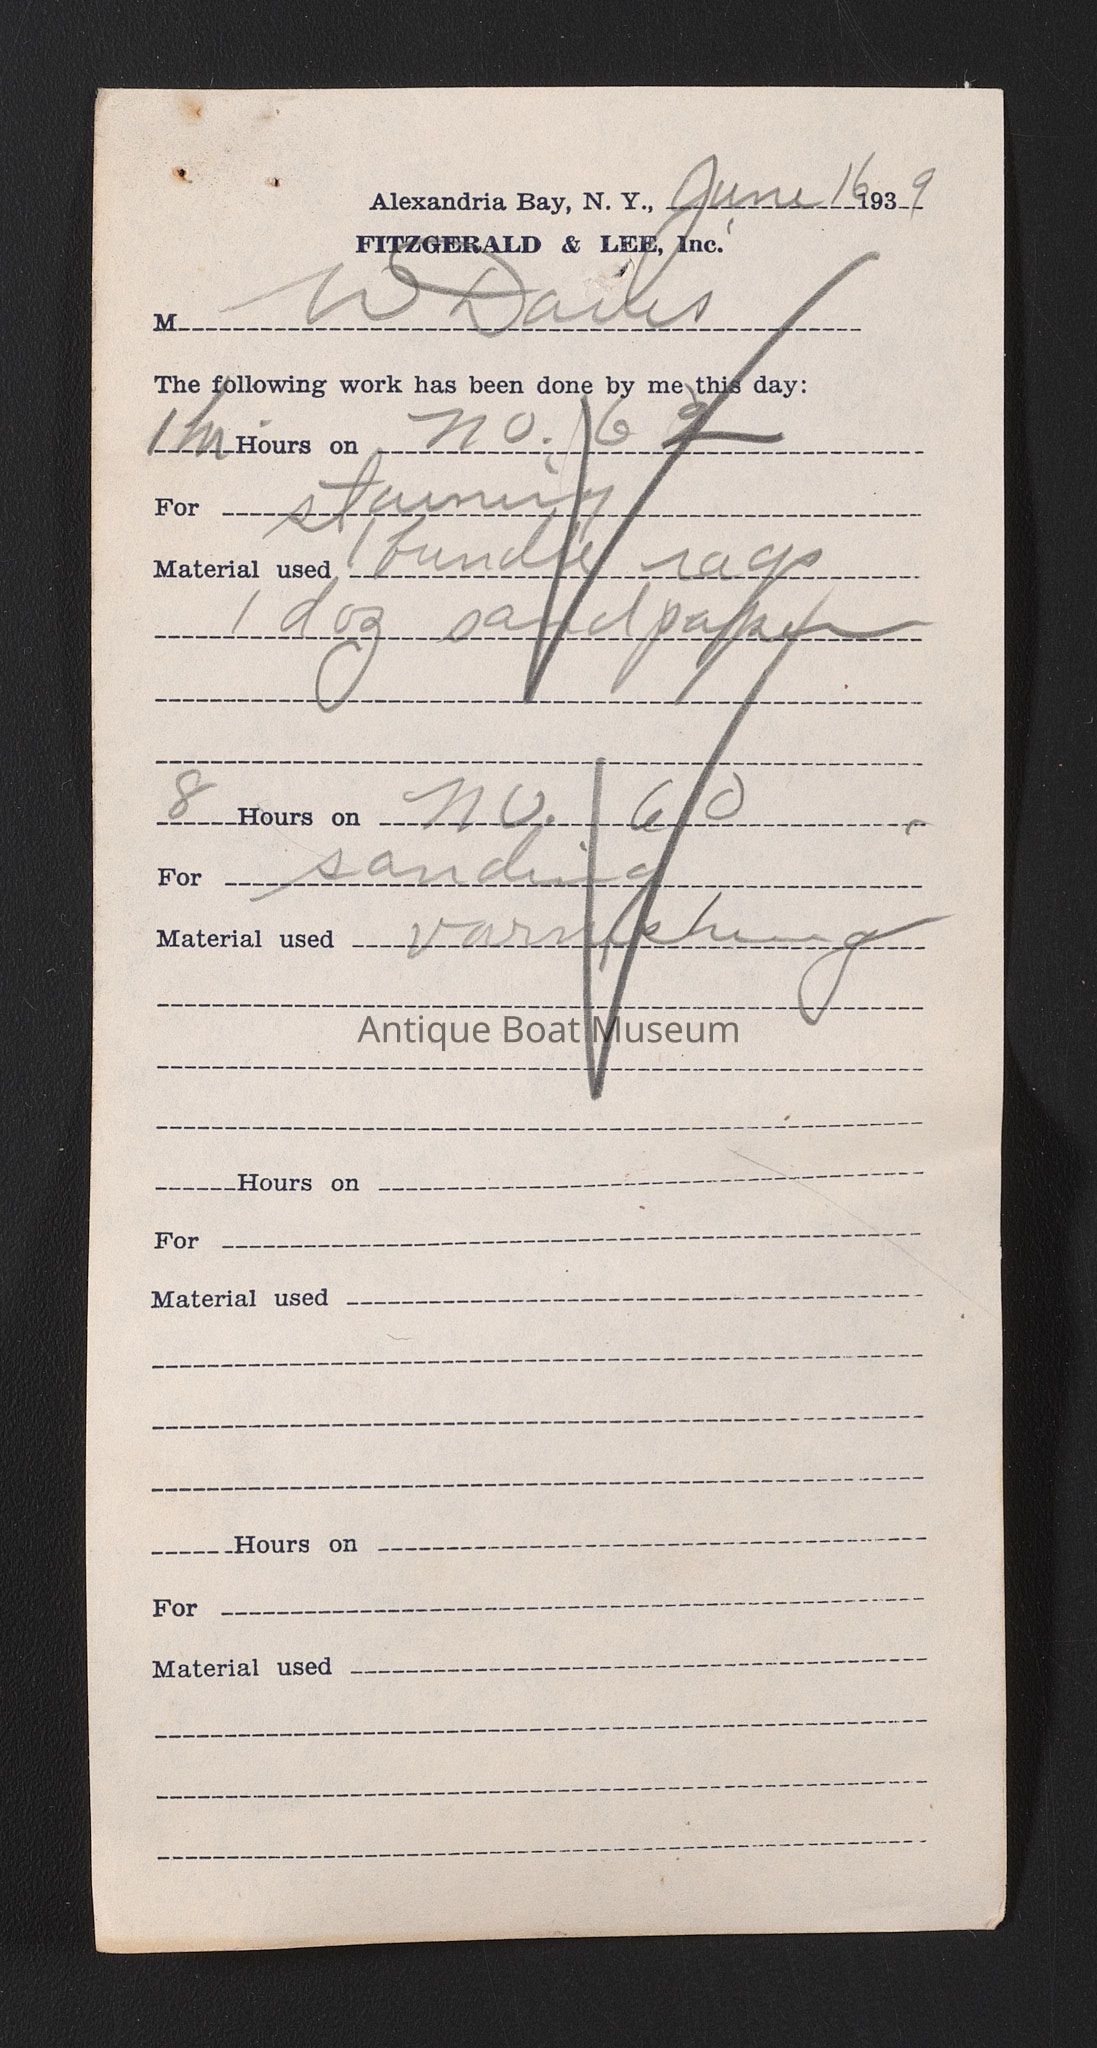 Alexandria Bay, N. Y., June 16 1939
FITZGERALD & LEE, Inc.
M W Davis
The following work has been done by me this day:
1 hr Hours on no. 62
For staining
Material used 1 bundle rags
1 doz sandpaper
8 Hours on no. 60
For sanding
Material used varnishing
Antique Boat Museum
Hours on
For
Material used
Hours on
For
Material used